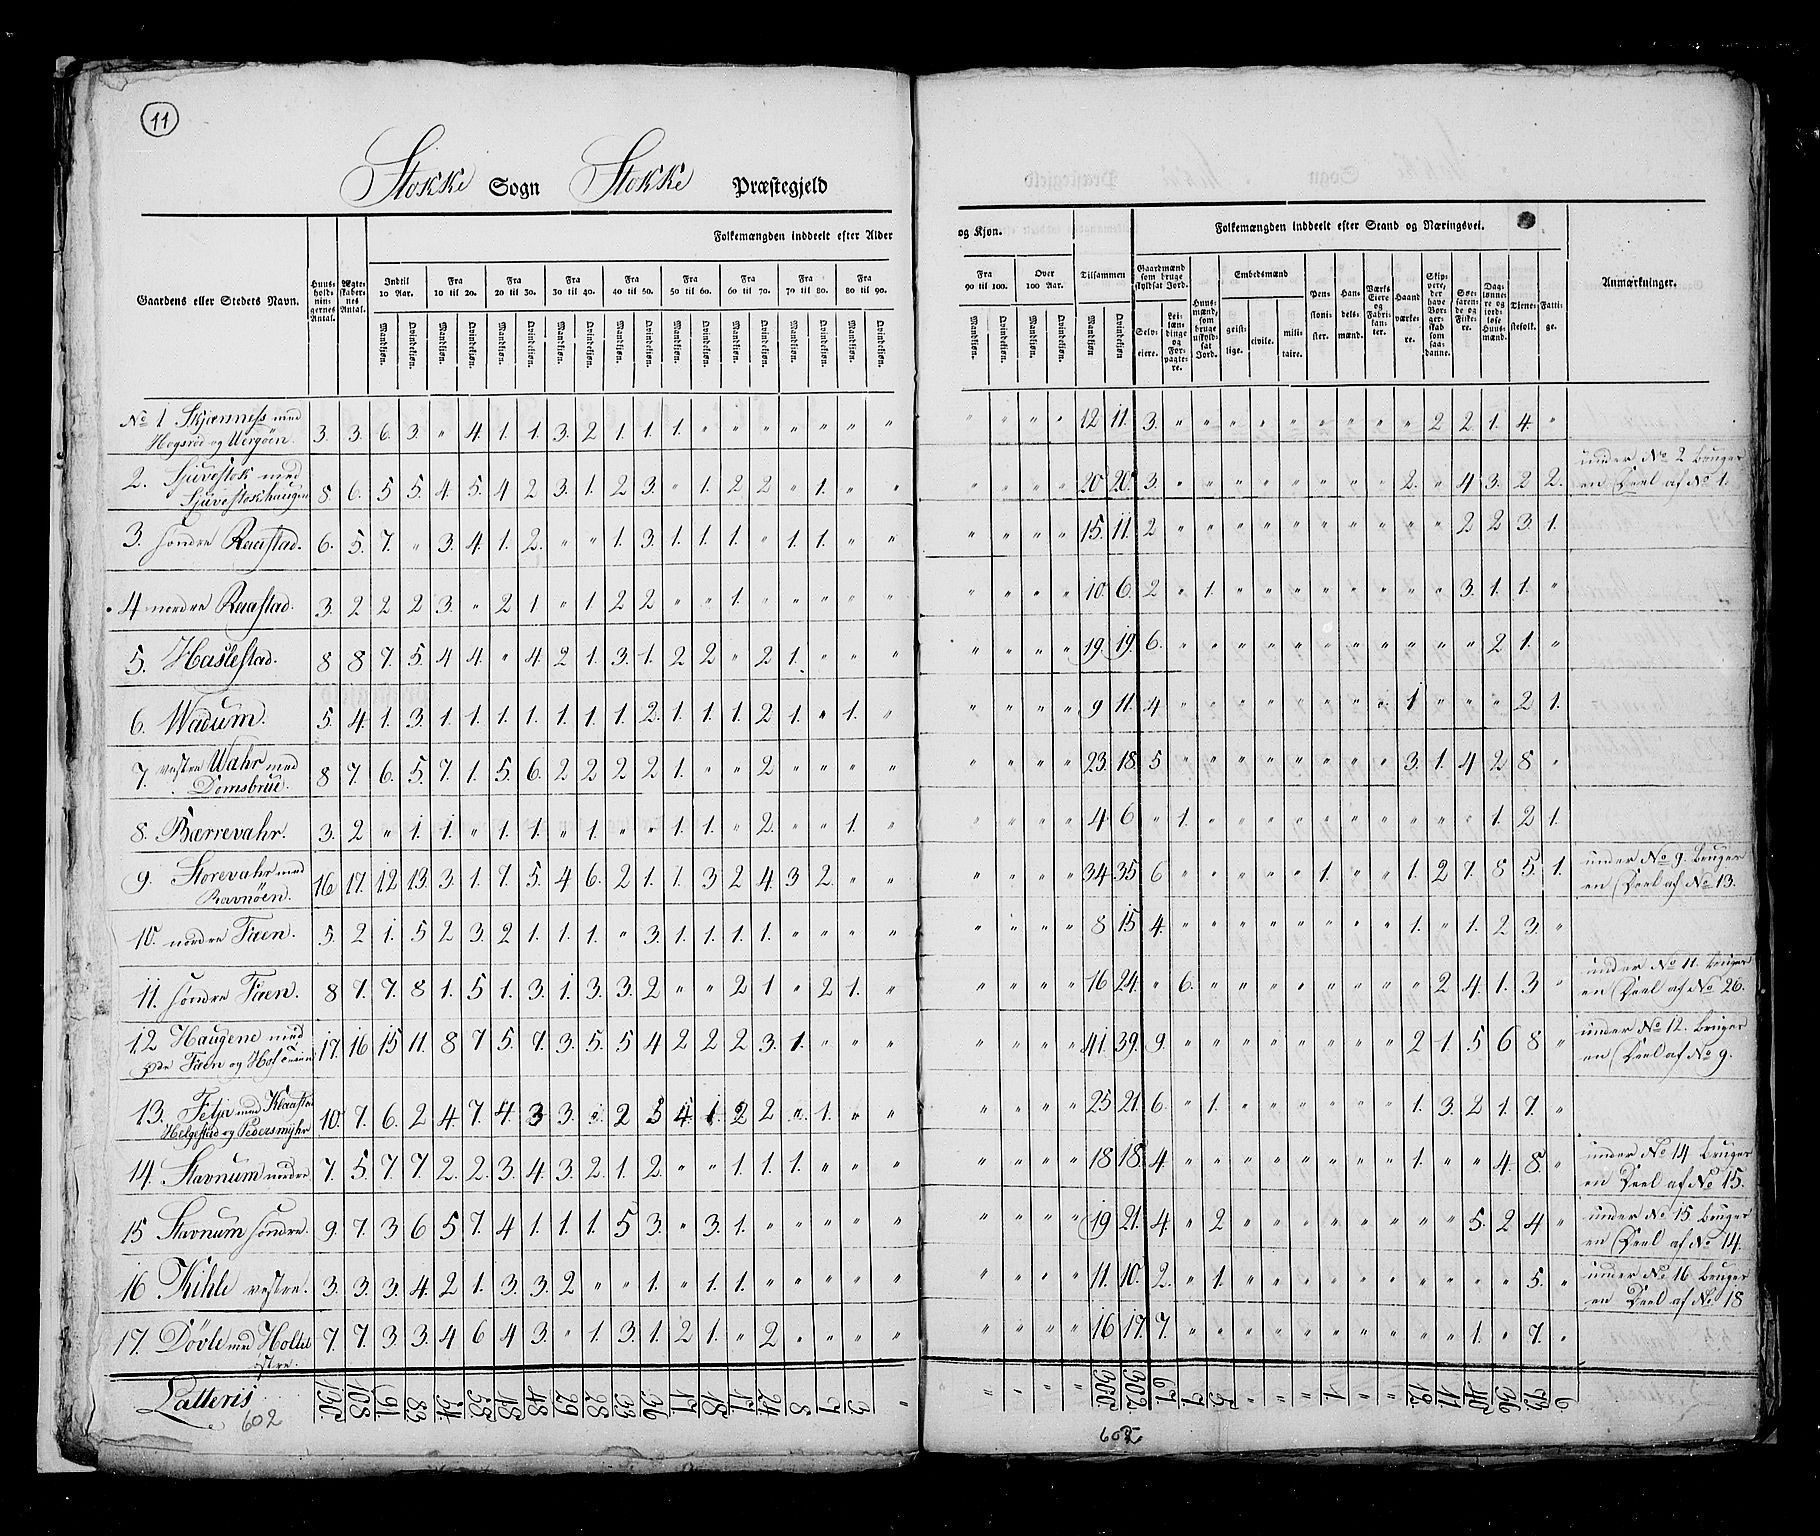 11
Stokke Sogn Stokke Præstegjeld
Gaardens eller Stedets Navn.
Huus-holdnin-gernes Antal.
Ægte-skaber-nes Antal.
Folkemængden inddeelt efter Alder
og Kjøn.
Folkemængden inddeelt efter Stand og Næringsvei.
Anmærkninger.
Indtil 10 Aar. Fra 10 til 20. Fra 20 til 30. Fra 30 til 40. Fra 40 til 50. Fra 50 til 60. Fra 60 til 70. Fra 70 til 80. Fra 80 til 90. Fra 90 til 100. Over 100 Aar. Tilsammen
Mandkjøn. Qvindekjøn.
Gaardmænd som bruge skyldsat Jord. Selv-eiere. Lei-læn-dinge og For-pagte-re.
Huus-mænd, som bruge uskyld-sat Jord.
Embedsmænd geist-lige. civile. mili-taire.
Pen-sioni-ster. Han-dels-mænd. Værks Eiere og Fabri-kan-ter. Haand værke-re. Skip-pere, der have Bor-ger-skab som saa-danne. Søe-faren-de og Fiske-re. Dag-lønne-re og jord-løse Huus-mænd. Tiene-stefolk. Fatti-ge.
No 1 Skjærness med Hogsrød og Vergöen. 3. 3. 6. 3. " 4. 1. 1. 3. 2 1. 1. 1. " " " " " " " " " " " 12 11. 3. " " " " " " " " " 2 2. 1. 4. "
2. Sjuestok med Sjuestokhaugen 8 6. 5 5. 4. 5. 4 2 3. 1. 2 3. " 1. 2 2 " 1. " " " " " " 20 20 3. " " " " " " " " 2. " 4 3. 2 2. under No 2 bruger en Deel af No 1.
3. søndre Raastad. 6. 5. 7. " 3. 4. 1. 2. " " 1. 3. 1. 1. 1. " 1. 1. " " " " " " 15. 11. 2 " " " " " " " " " " 2 2 3. 1.
4 nordre Raastad. 3. 2 2 2 3. " 2 1 " 1 2 2 " " 1. " " " " " " " " " 10. 6. 2 " 1. " " " " " " " " 3. 1. 1. "
5. Haslestad. 8 8 7. 5. 4 4. " 4 2 1. 3. 1. 2 2 " 2 1. " " " " " " " 19. 19. 6. " " " " " " " " " " " 2 1. "
6. Wadum. 5. 4. 1. 3. 1. 1. 1. 1. 1. 1. 1. 2. 1. 1. 1. 2 1. " 1. " " " " " 9 11. 4 " " " " " " " " 1. " " " 2 1.
7. vestre Wahr med Domsbrue. 8 7. 6. 5. 7. 1. 5. 6. 2 2 2 2 1. " " 2 " " " " " " " " 23. 18. 5 " " " " " " " " 3. 1. 4 2 8 "
8. Bærrevahr. 3. 2 " 1. 1. " 1. 1. " 1. " " 1. 1. " 2. " " 1. " " " " " 4. 6 " 1. " " " " " " " " " " 1. 2 1.
9. Storevahr med Ravnöen. 16 17. 12 13. 3. 1. 7. 5. 4 6. 2 1. 1. 3 2 4. 3 2. " " " " " " 34. 35 6 " " " " " 1. " " 1. 2 7. 8 5. 1. under No 9. bruger en Deel af No 13.
10. nordre Faen. 5. 2 1. 5 2 3. 2 1. 1. 1. " 3. 1. 1. 1. 1. " " " " " " " " 8 15 4. " " " " " " " " 1. " 1. 2 3. "
11. søndre Faen. 8 7. 7. 8 1. 5 1. 3. 1. 3. 3. 2 " " 2 1 " 2 1. " " " " " 16 24. " 6. " " " " " " " " 2 4. 1. 3 " under No 11. bruger en Deel af No 26.
12 Haugene med 17. 16 15 11. 8 7 5. 7. 3. 5. 5 4 2 2 2 3. 1. " " " " " " " 41. 39. 9. " " " " " " " " 2 1. 5 6 8 " under No 12. bruger en Deel af No 9.
13. Felja med Klaastad Helgestad og Pedersmyhr 10. 7. 6. 2 4. 7. 4. 3 3. " 2 3 4. 1. 2 2 " 1. " " " " " " 25 21. 6. " 1. " " " " " " 1. 3. 2 1. 7. "
14. Stavnum nordre 7. 5. 7. 7. 2. 2. 3. 4. 3. 2. 1. 2. " " 1. 1. 1. " " " " " " " 18 18. 4 " " " " " " " " 1. " " 4. 8. " under No 14 bruger en Deel af No 15.
15 Stavnum søndre. 9. 7. 3 6 5. 7. 4 1. 1. 1. 5 3. " 3. 1. " " " " " " " " " 19 21. 4 " 2 " " " " " " " " 5. 2 4 " under No 15. bruger en Deel af No 14.
16 Kihle vestre. 3. 3. 3. 4. 2 1. 3. 3. 2 " " 1. " 1. 1. " " " " " " " " " 11. 10. 2. " 1. " " " " " " " " " " 5. " under No 16 bruger en Deel af No 18
17. Dövle med Holtet østre. 7. 7. 3 3. 4 6 4 3. " 1. 3. 1. 2 1. " 2 " " " " " " " " 16 17. 7. " " " " " " " " " " 1. " 7. "
Latteris 108 91 83 54 48 29 28 33 36 17 18 17 24 8 7 3 " " " " " 300 302 67. 7 5 " " " 1. " " 12 11 40 36 73. 6.
602
602